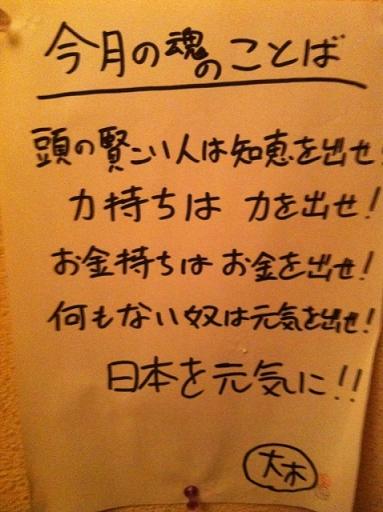 今月の魂のことば
頭の賢こい人は知恵を出せ
力持ちは 力を出せ!
お金持ちは お金を出せ!
何もない奴は元気を出せ!
日本を元気に!!
大木